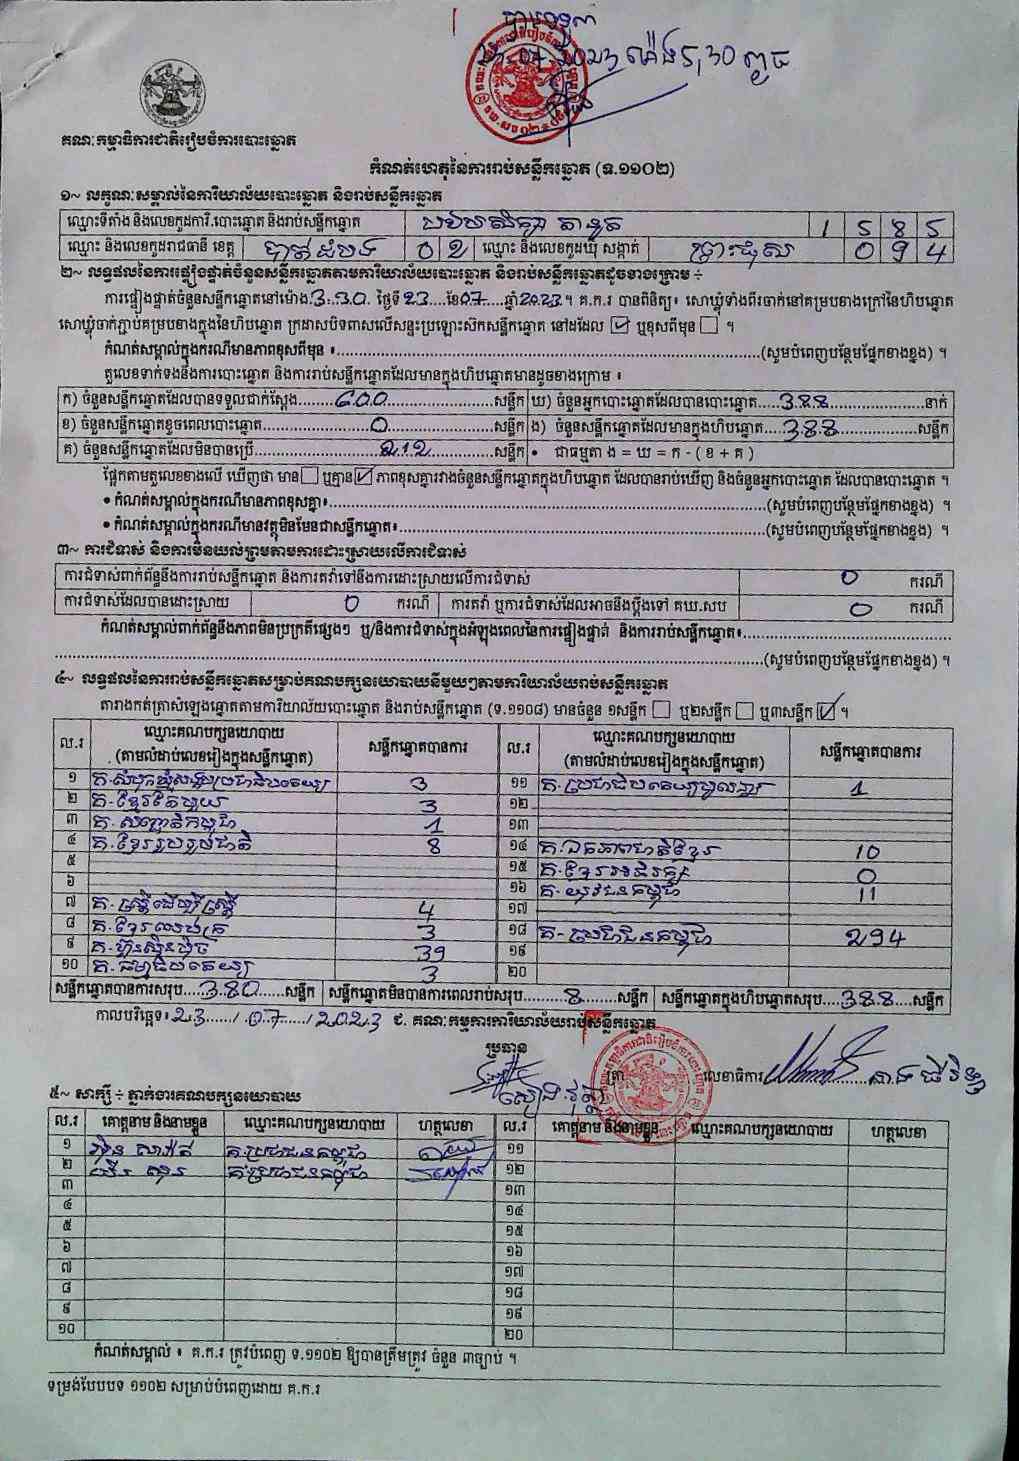 ២៣.០៧.២០២៣ ម៉ោង ៥,៣០ ល្ងាច
គណៈកម្មាធិការជាតិរៀបចំការបោះឆ្នោត
កំណត់ហេតុនៃការរាប់សន្លឹកឆ្នោត (ទ.១១០២)
១~ លក្ខណៈសម្គាល់នៃការិយាល័យបោះឆ្នោត និងរាប់សន្លឹកឆ្នោត
ឈ្មោះទីតាំង និងលេខកូដការិ.បោះឆ្នោត និងរាប់សន្លឹកឆ្នោត 1 5 8 5
ឈ្មោះ និងលេខកូដរាជធានី ខេត្ត បាត់ដំបង 0 2 ឈ្មោះ និងលេខកូដឃុំ សង្កាត់ 0 9 4
២~ លទ្ធផលនៃការផ្ទៀងផ្ទាត់ចំនួនសន្លឹកឆ្នោតតាមការិយាល័យបោះឆ្នោត និងរាប់សន្លឹកឆ្នោតដូចខាងក្រោម ÷
ការផ្ទៀងផ្ទាត់ចំនួនសន្លឹកឆ្នោតនៅម៉ោង 3:30 ថ្ងៃទី 23 ខែ 07 ឆ្នាំ 2023 ។ គ.ក.រ បានពិនិត្យ៖ សោឃ្លុំទាំងពីរចាក់នៅគម្របខាងក្រៅនៃហិបឆ្នោត
សោឃ្លុំចាក់ភ្ជាប់គម្របខាងក្នុងនៃហិបឆ្នោត ក្រដាសបិទពាសលើសន្ទះប្រឡោះស៊កសន្លឹកឆ្នោត នៅដដែល ☑ ឬខុសពីមុន ☐ ។
កំណត់សម្គាល់ក្នុងករណីមានភាពខុសពីមុន ៖ (សូមបំពេញបន្ថែមផ្នែកខាងខ្នង) ។
តួលេខទាក់ទងនឹងការបោះឆ្នោត និងការរាប់សន្លឹកឆ្នោតដែលមានក្នុងហិបឆ្នោតមានដូចខាងក្រោម ៖
ក) ចំនួនសន្លឹកឆ្នោតដែលបានទទួលជាក់ស្តែង 600 សន្លឹក ឃ) ចំនួនអ្នកបោះឆ្នោតដែលបានបោះឆ្នោត 388 នាក់
ខ) ចំនួនសន្លឹកឆ្នោតខូចពេលបោះឆ្នោត 0 សន្លឹក ង) ចំនួនសន្លឹកឆ្នោតដែលមានក្នុងហិបឆ្នោត 388 សន្លឹក
គ) ចំនួនសន្លឹកឆ្នោតដែលមិនបានប្រើ 212 សន្លឹក • ជាធម្មតា ង = ឃ = ក - ( ខ + គ )
ផ្អែកតាមតួលេខខាងលើ ឃើញថា មាន ☐ ឬគ្មាន ☑ ភាពខុសគ្នារវាងចំនួនសន្លឹកឆ្នោតក្នុងហិបឆ្នោត ដែលបានរាប់ឃើញ និងចំនួនអ្នកបោះឆ្នោត ដែលបានបោះឆ្នោត ។
• កំណត់សម្គាល់ក្នុងករណីមានភាពខុសគ្នា៖ (សូមបំពេញបន្ថែមផ្នែកខាងខ្នង) ។
• កំណត់សម្គាល់ក្នុងករណីមានវត្ថុមិនមែនជាសន្លឹកឆ្នោត៖ (សូមបំពេញបន្ថែមផ្នែកខាងខ្នង) ។
៣~ ការជំទាស់ និងការមិនយល់ព្រមតាមការដោះស្រាយលើការជំទាស់
ការជំទាស់ពាក់ព័ន្ធនឹងការរាប់សន្លឹកឆ្នោត និងការតវ៉ាទៅនឹងការដោះស្រាយលើការជំទាស់ 0 ករណី
ការជំទាស់ដែលបានដោះស្រាយ 0 ករណី ការតវ៉ា ឬការជំទាស់ដែលអាចនឹងប្តឹងទៅ គឃ.សប 0 ករណី
កំណត់សម្គាល់ពាក់ព័ន្ធនឹងភាពមិនប្រក្រតីផ្សេងៗ ឬ/និងការជំទាស់ក្នុងអំឡុងពេលនៃការផ្ទៀងផ្ទាត់ និងការរាប់សន្លឹកឆ្នោត៖
(សូមបំពេញបន្ថែមផ្នែកខាងខ្នង) ។
៤~ លទ្ធផលនៃការរាប់សន្លឹកឆ្នោតសម្រាប់គណបក្សនយោបាយនីមួយៗតាមការិយាល័យរាប់សន្លឹកឆ្នោត
តារាងកត់ត្រាសំឡេងឆ្នោតតាមការិយាល័យបោះឆ្នោត និងរាប់សន្លឹកឆ្នោត (ទ.១១០៨) មានចំនួន ១សន្លឹក ☐ ឬ២សន្លឹក ☐ ឬ៣សន្លឹក ☑ ។
ល.រ ឈ្មោះគណបក្សនយោបាយ (តាមលំដាប់លេខរៀងក្នុងសន្លឹកឆ្នោត) សន្លឹកឆ្នោតបានការ ល.រ ឈ្មោះគណបក្សនយោបាយ (តាមលំដាប់លេខរៀងក្នុងសន្លឹកឆ្នោត) សន្លឹកឆ្នោតបានការ
១ គ.សំបុកឃ្មុំសង្គមប្រជាធិបតេយ្យ 3 ១១ គ.ប្រជាធិបតេយ្យមូលដ្ឋាន 1
២ គ.ខ្មែរតែមួយ 3 ១២
៣ គ.សញ្ជាតិកម្ពុជា 1 ១៣
៤ គ.ខ្មែររួបរួមជាតិ 8 ១៤ គ.ឯកភាពជាតិខ្មែរ 10
៥ ១៥ គ.ខ្មែរអភិរក្ស 0
៦ ១៦ គ.យុវជនកម្ពុជា 11
៧ គ.ស្ត្រីដើម្បីស្ត្រី 4 ១៧
៨ គ.ខ្មែរឈប់ក្រ 3 ១៨ គ.ប្រជាជនកម្ពុជា 294
៩ គ.ហ៊្វុនស៊ិនប៉ិច 39 ១៩
១០ គ.ធម្មាធិបតេយ្យ 3 ២០
សន្លឹកឆ្នោតបានការសរុប 380 សន្លឹក សន្លឹកឆ្នោតមិនបានការពេលរាប់សរុប 8 សន្លឹក សន្លឹកឆ្នោតក្នុងហិបឆ្នោតសរុប 388 សន្លឹក
កាលបរិច្ឆេទ៖ 23 / 07 / 2023 ជ. គណៈកម្មការការិយាល័យរាប់សន្លឹកឆ្នោត
ប្រធាន ត្រា លេខាធិការ
៥~ សាក្សី ÷ ភ្នាក់ងារគណបក្សនយោបាយ
ល.រ គោត្តនាម និងនាមខ្លួន ឈ្មោះគណបក្សនយោបាយ ហត្ថលេខា ល.រ គោត្តនាម និងនាមខ្លួន ឈ្មោះគណបក្សនយោបាយ ហត្ថលេខា
១ គ.ប្រជាជនកម្ពុជា ១១
២ គ.ប្រជាជនកម្ពុជា ១២
៣ ១៣
៤ ១៤
៥ ១៥
៦ ១៦
៧ ១៧
៨ ១៨
៩ ១៩
១០ ២០
កំណត់សម្គាល់ ៖ គ.ក.រ ត្រូវបំពេញ ទ.១១០២ ឱ្យបានត្រឹមត្រូវ ចំនួន ៣ច្បាប់ ។
ទម្រង់បែបបទ ១១០២ សម្រាប់បំពេញដោយ គ.ក.រ